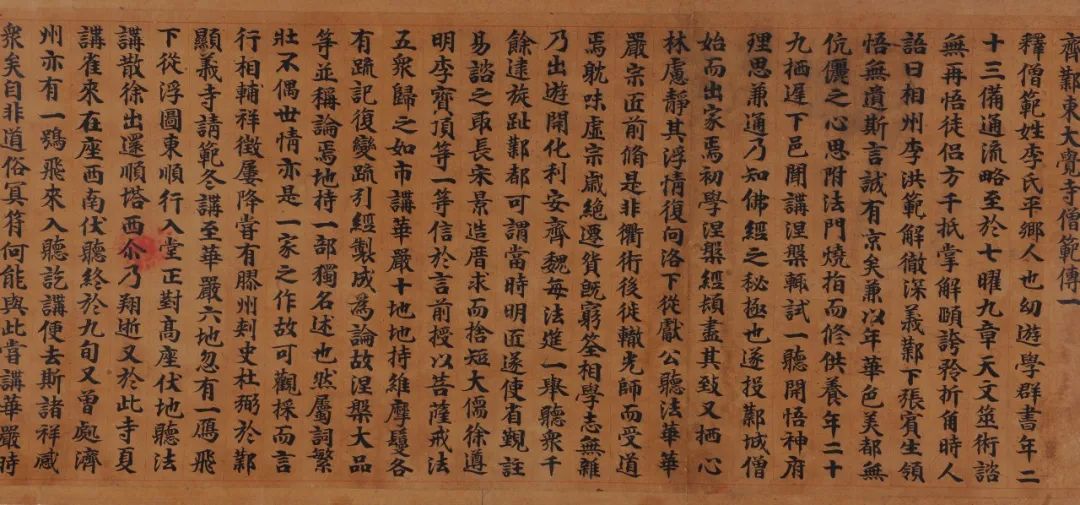 齊鄴東大覺寺僧範傳一
釋僧範姓李氏平鄉人也幼遊學群書年二
十三備通流略至於七曜九章天文筮術諮
無再悟徒侶方千抵掌解頤誇矜折角時人
語曰相州李洪範解徹深義鄴下張賓生領
悟無遺斯言誠有京矣兼以年華色美都無
伉儷之心思附法門燒指而修供養年二十
九栖遲下邑聞講涅槃輒試一聽開悟神府
理思兼通乃知佛經之秘極也遂投鄴城僧
始而出家焉初學涅槃經頗盡其致又栖心
林慮靜其浮情復向洛下從獻公聽法華華
嚴宗匠前脩是非衢術後徙轍光師而受道
焉躭味虛宗歲絕遷貿既窮筌相學志無雜
乃出遊開化利安齊魏每法筵一舉聽衆千
餘逮旋趾鄴都可謂當時明匠遂使省覲註
易諮之取長宋景造曆求而捨短大儒徐遵
明李寶頂等一等信於言前授以菩薩戒法
五衆歸之如市講華嚴十地地持維摩鬘各
有疏記復變疏引經製成為論故涅槃大品
等並稱論焉地持一部獨名述也然屬詞繁
壯不偶世情亦是一家之作故可觀採而言
行相輔祥徵屢降嘗有膠州刾史杜弼於鄴
顯義寺請範冬講至華嚴六地忽有一鴈飛
下從浮圖東順行入堂正對髙座伏地聽法
講散徐出還順塔西尒乃翔逝又於此寺夏
講雀來在座西南伏聽終於九旬又曾處濟
州亦有一鴞飛來入聽訖講便去斯諸祥感
衆矣自非道俗冥符何能與此嘗講華嚴時